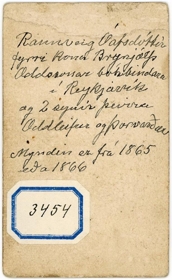 Rannveig Ólafsdóttir
fyrri kona Brynjólfs
Oddssonar bókbindara
í Reykjavík
og 2 synir þeirra
Oddleifur og Þorvarður
Myndin er frá 1865
eða 1866
3454